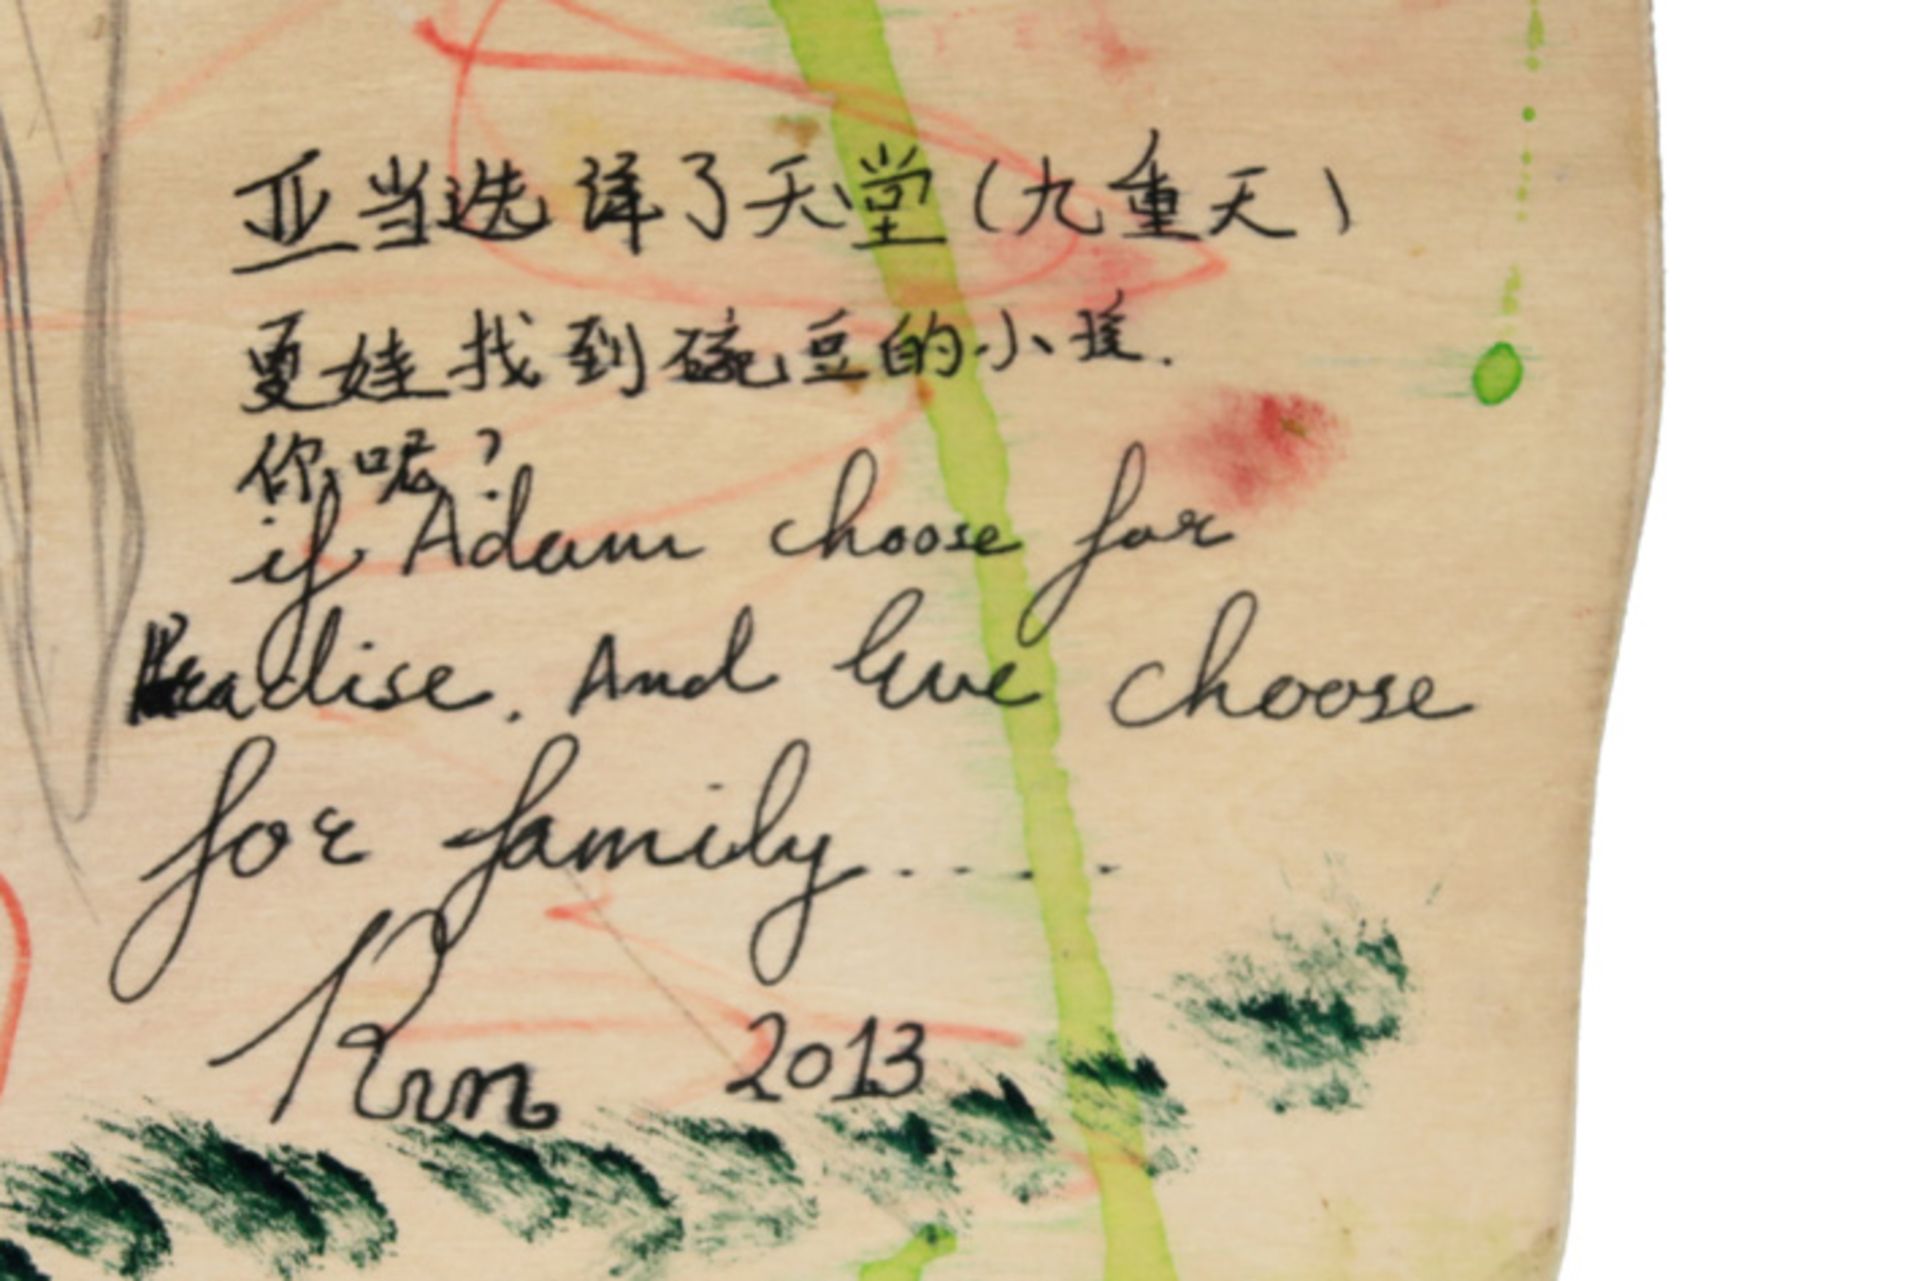 亚当选择了天堂（九重天）
夏娃找到碗豆的小孩.
你呢?
if Adam choose for
Paradise. And Eve choose
for family......
Run 2013